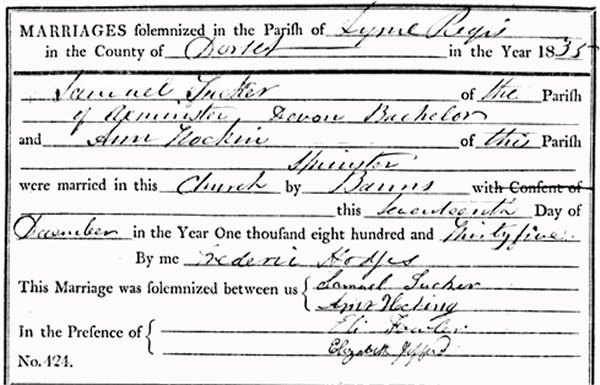 MARRIAGES solemnized in the Parish of Lyme Regis
in the County of Dorset in the Year 1835
Samuel Tucker of the Parish
of Axminster Devon Bachelor
and Ann Hockin of this Parish
Spinster
were married in this Church by Banns with Consent of
this seventeenth Day of
December in the Year One thousand eight hundred and Thirty five
By me Frederic Hodges
This Marriage was solemnized between us { Samuel Tucker
Ann Hocking
In the Presence of { Eli Fowler
Elizabeth
No. 424.